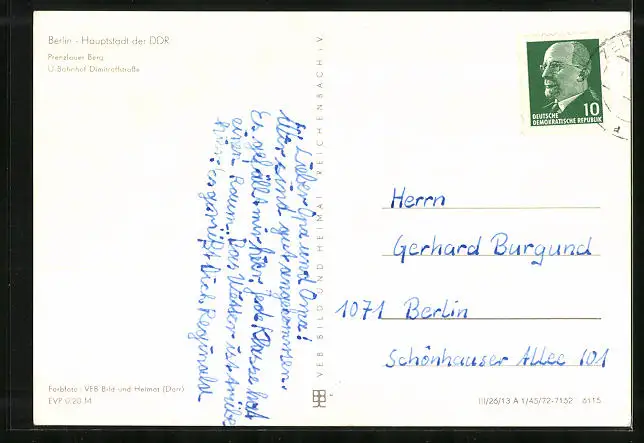 Berlin - Hauptstadt der DDR
Prenzlauer Berg
U-Bahnhof Dimitroffstraße
Lieber Opa und Oma!
Wir sind gut angekommen.
Es gefällt mir hier. Jede Klasse hat
einen Raum. Das Wetter ist trübe
hier. Es grüßt Dich Reginald
VEB BILD UND HEIMAT REICHENBACH i.V.
10
DEUTSCHE
DEMOKRATISCHE REPUBLIK
Herrn
Gerhard Burgund
1071 Berlin
Schönhauser Allee 101
Farbfoto: VEB Bild und Heimat (Darr)
EVP 0,20 M
III/26/13 A 1/45/72-7152 6115